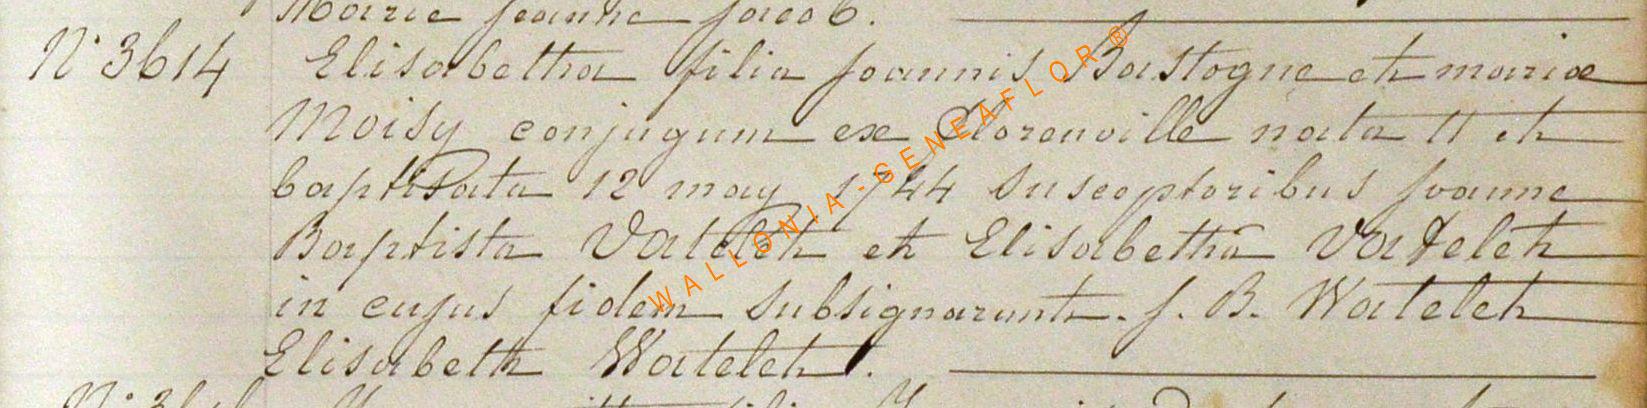 Marie Jeanne Jacob.
N° 3614 Elisabetha filia Joannis Bastogne et mariæ
Moisy conjugum ex Florenville nata 11 et
baptisata 12 may 1744 Susceptoribus Joanne
Baptista Vatelet et Elisabetha Vatelet
in cujus fidem subsignarunt. J. B. Watelet
Elisabeth Watelet.
WALLONIA-GENEAFLOR®